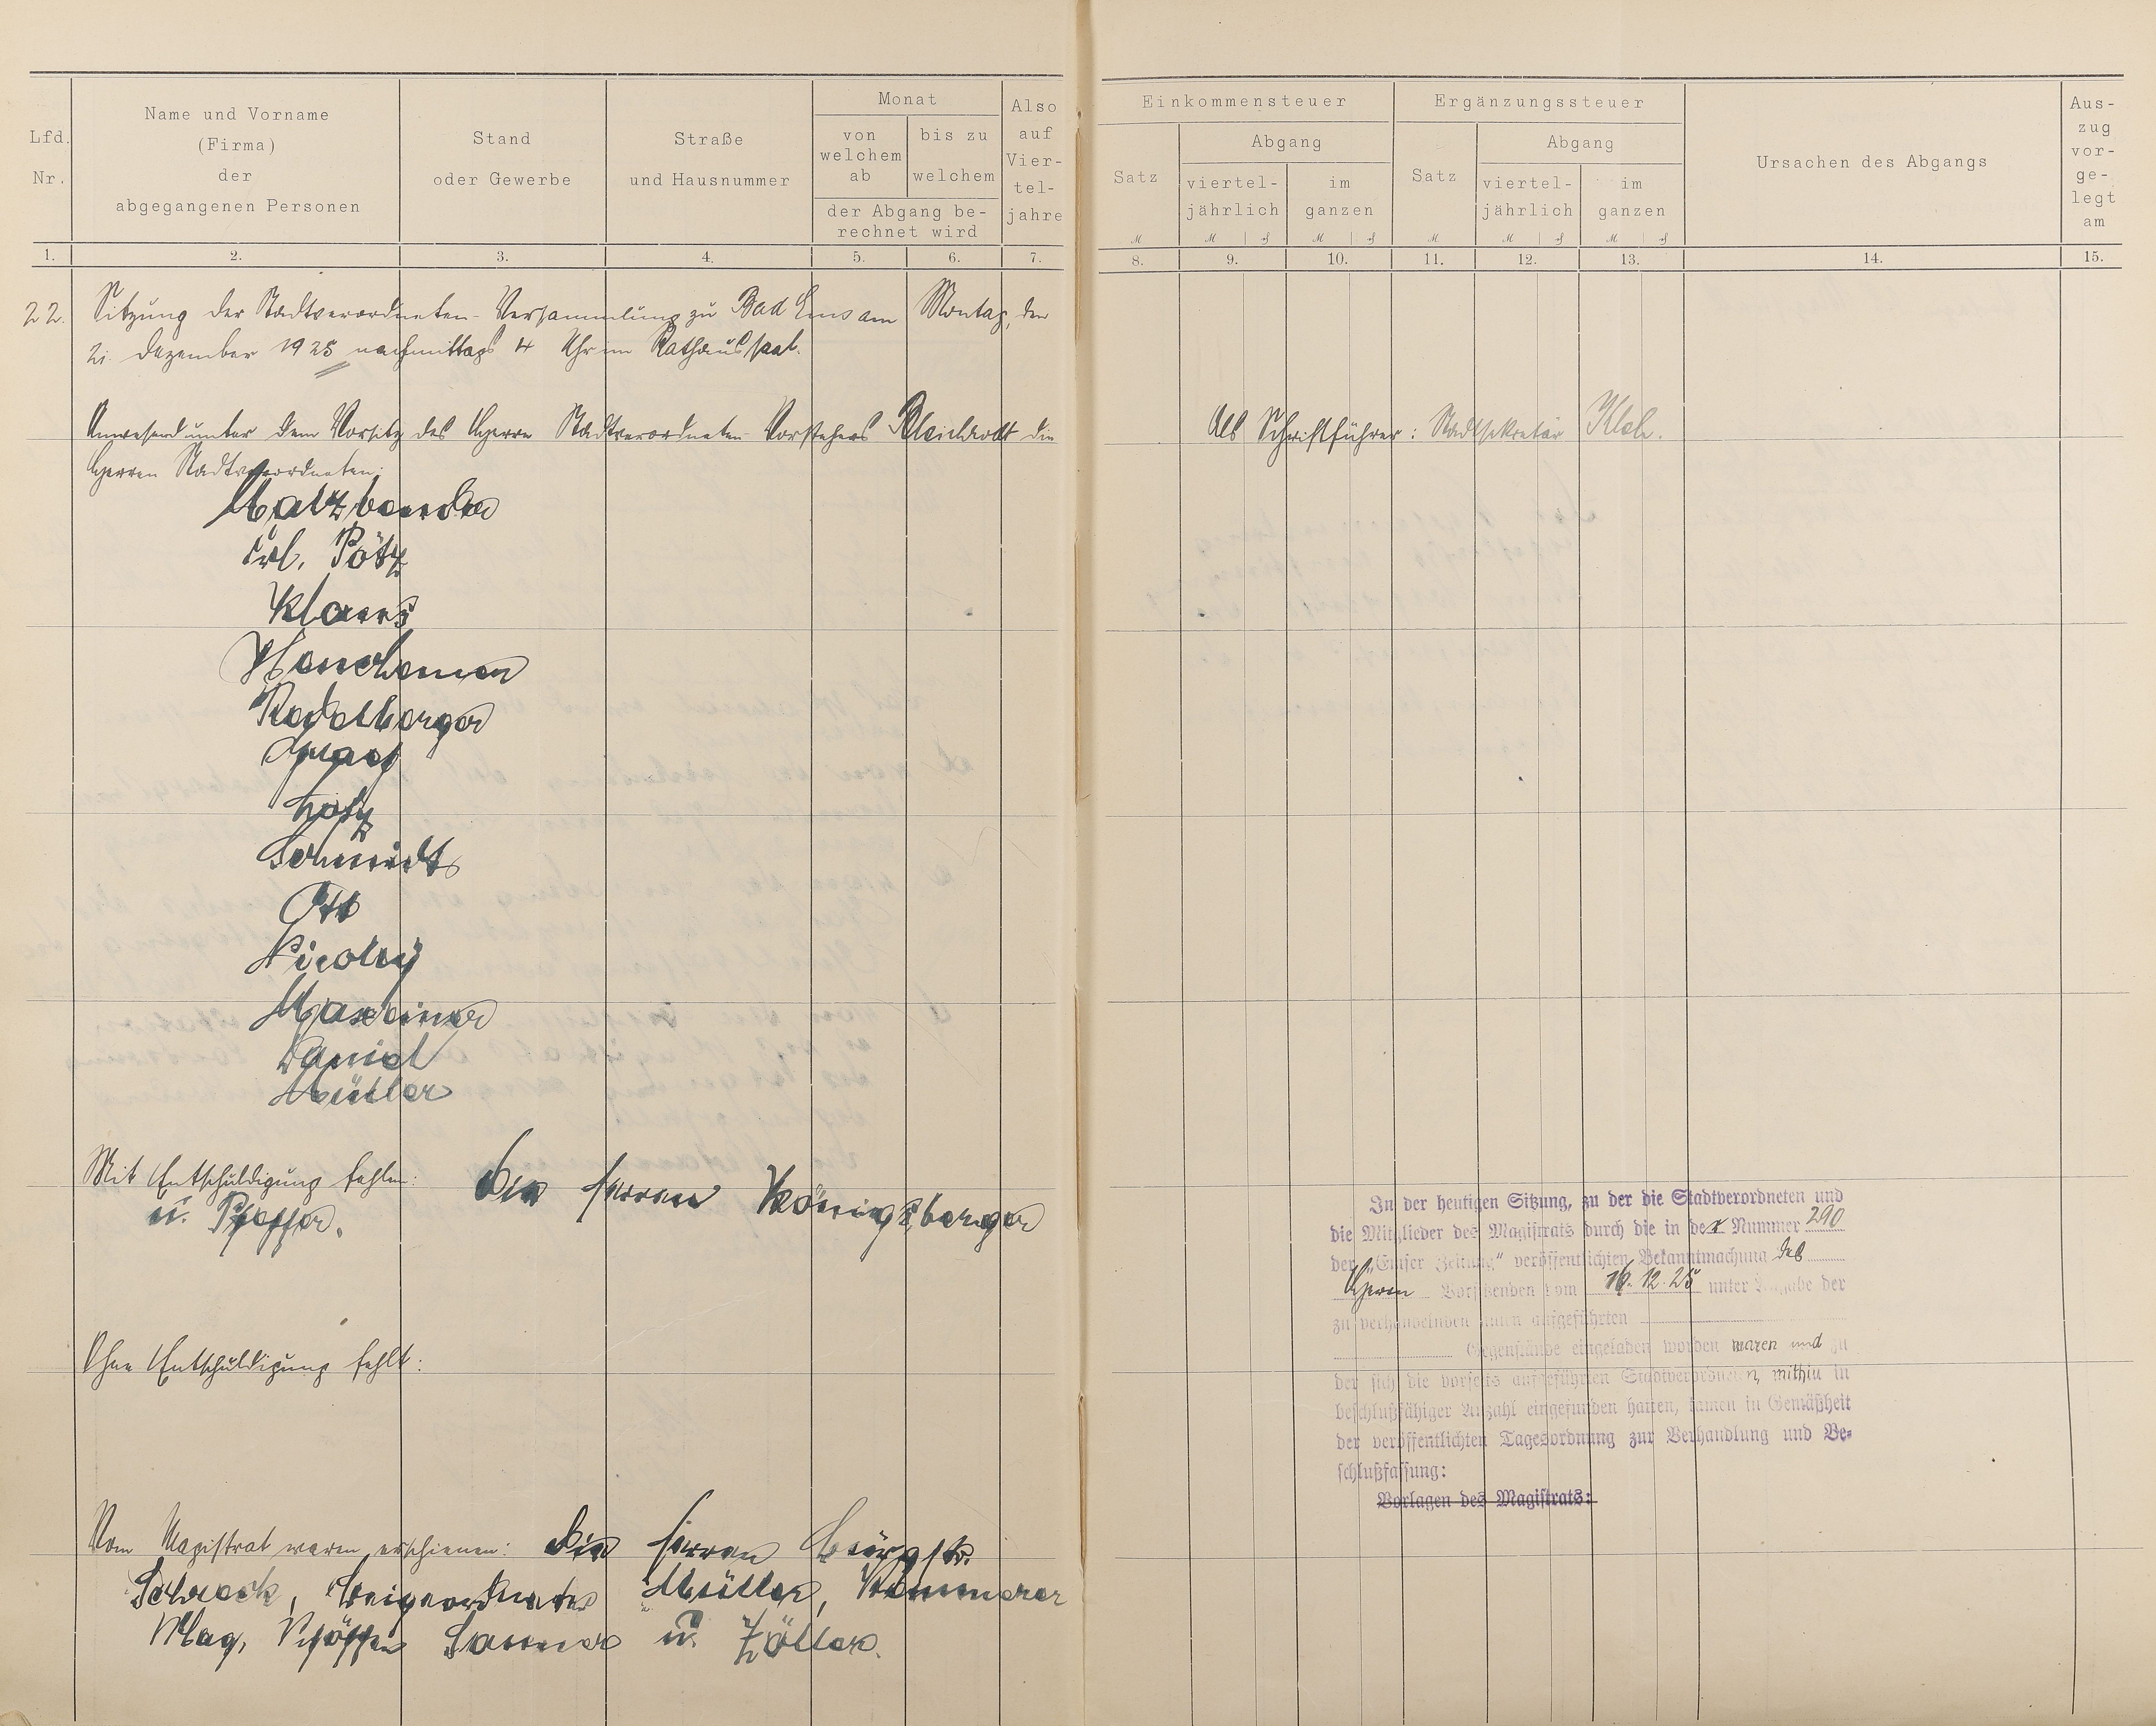 Lfd. Nr.
Name und Vorname
(Firma)
der
abgegangenen Personen
Stand
oder Gewerbe
Straße
und Hausnummer
Monat
von welchem ab
bis zu welchem
der Abgang be-
rechnet wird
Also auf Vier-
tel-
jahre
Einkommensteuer
Satz
Abgang
viertel-
jährlich
im
ganzen
Ergänzungssteuer
Satz
Abgang
viertel-
jährlich
im
ganzen
Ursachen des Abgangs
Aus-
zug
vor-
ge-
legt
am
1. 2. 3. 4. 5. 6. 7. 8. 9. 10. 11. 12. 13. 14. 15.
22. Sitzung der Stadtverordneten-Versammlung zu Bad Ems am Montag, den
21. Dezember 1925 nachmittags 4 Uhr im Rathaussaal.
Anwesend unter dem Vorsitz des Herrn Stadtverordneten-Vorstehers Bleichrodt die
Herren Stadtverordneten:
Frl. Pötz
Klaus
Graef
Schmidt
Ott
Nicolay
Maxeiner
Daniel
Müller
Mit Entschuldigung fehlen: die Herren Königsberger
u. Pfeffer.
Ohne Entschuldigung fehlt:
Vom Magistrat waren erschienen: die Herren Bürgstr.
Schreck, Beigeordneter Müller, Kämmerer
Mag. Schöffen u. Zöller.
Als Schriftführer: Stadtsekretär
In der heutigen Sitzung, zu der die Stadtverordneten und
die Mitglieder des Magistrats durch die in der Nummer 290
der „Emser Zeitung" veröffentlichten Bekanntmachung des
Herrn Vorsitzenden vom 16.12.25 unter Angabe der
zu verhandelnden unten aufgeführten
Gegenstände eingeladen worden waren und zu
der sich die vorseits aufgeführten Stadtverordneten, mithin in
beschlußfähiger Anzahl eingefunden hatten, kamen in Gemäßheit
der veröffentlichten Tagesordnung zur Verhandlung und Be-
schlußfassung:
Vorlagen des Magistrats: